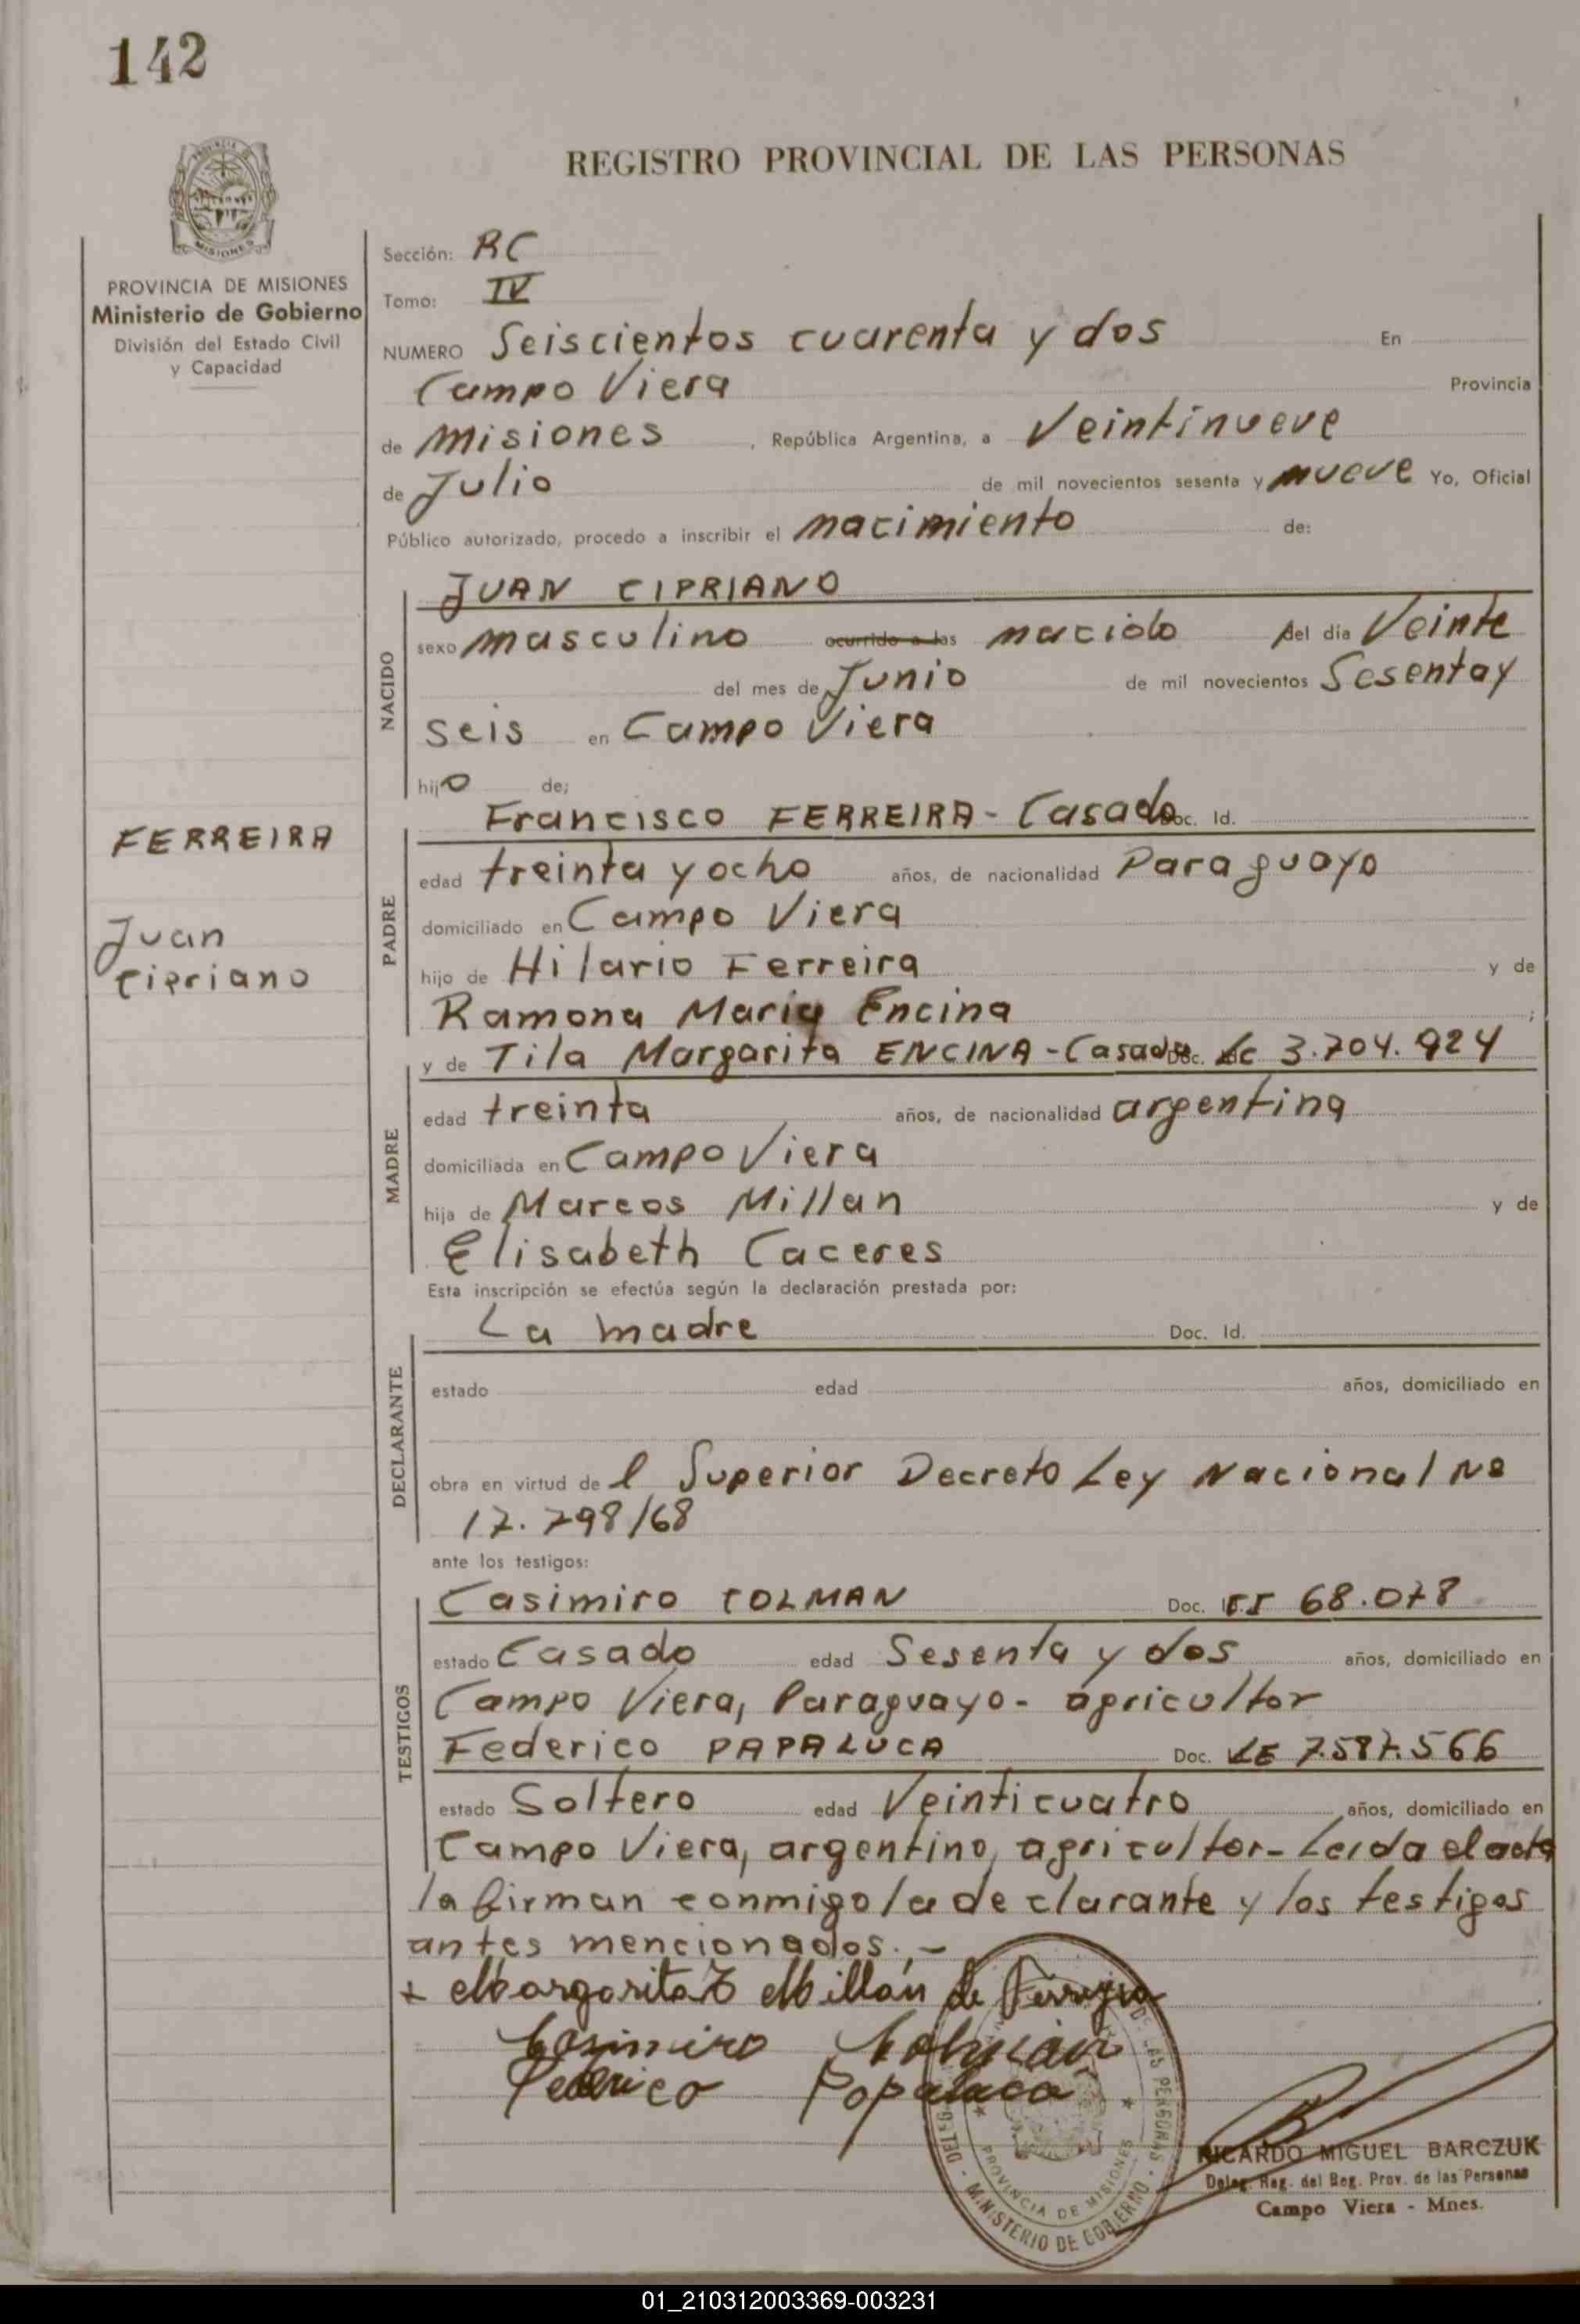 142
REGISTRO PROVINCIAL DE LAS PERSONAS
PROVINCIA DE MISIONES
Ministerio de Gobierno
División del Estado Civil
y Capacidad
Sección: RC
Tomo: IV
NUMERO Seiscientos cuarenta y dos En
Campo Viera Provincia
de Misiones , República Argentina, a Veintinueve
de Julio de mil novecientos sesenta y nueve Yo, Oficial
Público autorizado, procedo a inscribir el nacimiento de:
NACIDO
JUAN CIPRIANO
sexo masculino ocurrido a las nacido del dia Veinte
del mes de Junio de mil novecientos Sesenta y
seis en Campo Viera
hijo de;
FERREIRA
Juan
Cipriano
PADRE
Francisco FERREIRA - Casado Doc. Id.
edad treinta y ocho años, de nacionalidad Paraguayo
domiciliado en Campo Viera
hijo de Hilario Ferreira y de
Ramona Maria Encina ;
MADRE
y de Tila Margarita ENCINA - Casada Doc. LC 3.704.924
edad treinta años, de nacionalidad argentina
domiciliada en Campo Viera
hija de Marcos Millan y de
Elisabeth Caceres
Esta inscripción se efectúa según la declaración prestada por:
DECLARANTE
La madre Doc. Id.
estado edad años, domiciliado en
obra en virtud de l Superior Decreto Ley Nacional No
17.798/68
ante los testigos:
TESTIGOS
Casimiro COLMAN Doc. 68.078
estado Casado edad Sesenta y dos años, domiciliado en
Campo Viera, Paraguayo - agricultor
Federico PAPALUCA Doc. LE 7.587.566
estado Soltero edad Veinticuatro años, domiciliado en
Campo Viera, argentino, agricultor - Leida el acta
la firman conmigo la declarante y los testigos
antes mencionados. -
+ Margarita T Millán de Ferreyra
Casimiro Colmán
Federico Papaluca
PROVINCIA DE MISIONES
MINISTERIO DE GOBIERNO
DE LAS PERSONAS
RICARDO MIGUEL BARCZUK
Deleg. Reg. del Reg. Prov. de las Personas
Campo Viera - Mnes.
01_210312003369-003231